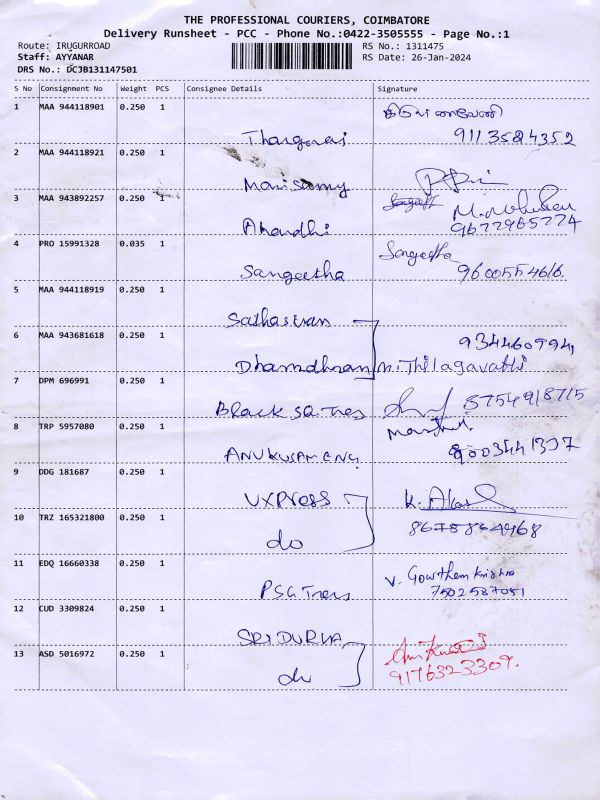 THE PROFESSIONAL COURIERS, COIMBATORE
Delivery Runsheet - PCC - Phone No.:0422-3505555 - Page No.:1
Route: IRUGURROAD RS No.: 1311475
Staff: AYYANAR RS Date: 26-Jan-2024
DRS No.: DCJB131147501
S No Consignment No Weight PCS Consignee Details Signature
1 MAA 944118901 0.250 1
Thangaraj 9113584352
2 MAA 944118921 0.250 1
Marisamy
3 MAA 943892257 0.250 1
9677965774
4 PRO 15991328 0.035 1 Sangeetha
Sangeetha 9600554616.
5 MAA 944118919 0.250 1
Sathasivan
6 MAA 943681618 0.250 1 9344609941
M. Thilagavathi
7 DPM 696991 0.250 1
8754918715
8 TRP 5957080 0.250 1
ANUKUSAM ENG 8003441337
9 DDG 181687 0.250 1
UXPRESS K. Akash
10 TRZ 165321800 0.250 1
do
11 EDQ 16660338 0.250 1
PSG Trans V. Gowthem Krishna
7502587051
12 CUD 3309824 0.250 1
SRI DURGA
13 ASD 5016972 0.250 1
do 9176323309.